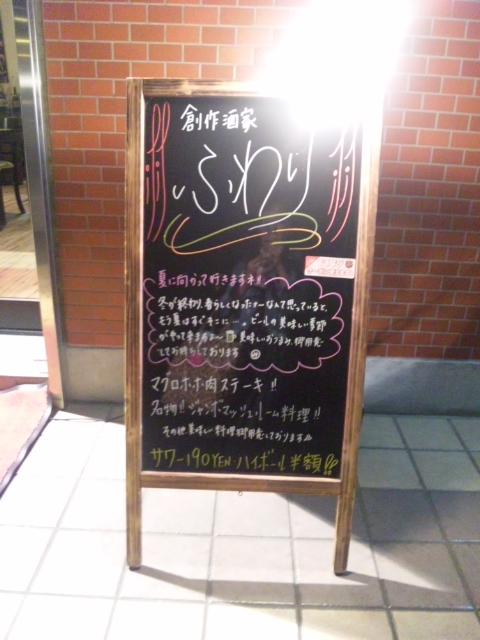 創作酒家
ふわり
夏に向かって行きますネ!!
冬が終わり、春らしくなったナーなんて思っていると、
もう夏はすぐそこに…。ビールの美味しい季節
がやって来ますよ〜 美味しいおつまみ、御用意
してお待ちしております
マグロホホ肉ステーキ!!
名物!!ジャンボマッシュルーム料理!!
その他美味しい料理御用意しております
サワー190YEN・ハイボール半額!!